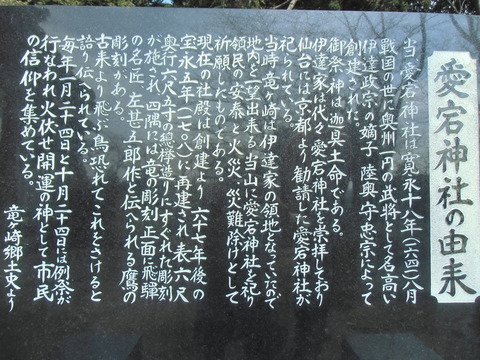 愛宕神社の由来
当、愛宕神社は寛永十八年(一六四一)八月
戦国の世に奥州一円の武将として名高い
伊達政宗の嫡子 陸奥ノ守忠宗によって
創建された。
御祭神は迦具土命である。
伊達家は代々愛宕神社を崇拝しており
仙台には京都より勧請した愛宕神社が
祀られている。
当時竜ヶ崎は伊達家の領地となっていたので
地内を一望出来る当山に愛宕神社を祀り
領民の安泰と火災、災難除けとして
祈願したものである。
現在の社殿は創建より六十七年後の
宝永五年(一七〇八)に再建され表六尺
奥行六尺五寸の総欅造りにすぐれた彫刻
が施され四隅には竜の彫刻正面に飛騨
の名匠 左甚五郎作と伝へられる鷹の
彫刻がある。
古来より飛ぶ鳥恐されてこれをさけると
語り伝へられている。
毎年一月二十四日と十月二十四日は例祭が
行なわれ火伏せ開運の神として市民
の信仰を集めている。
竜ヶ崎郷土史より